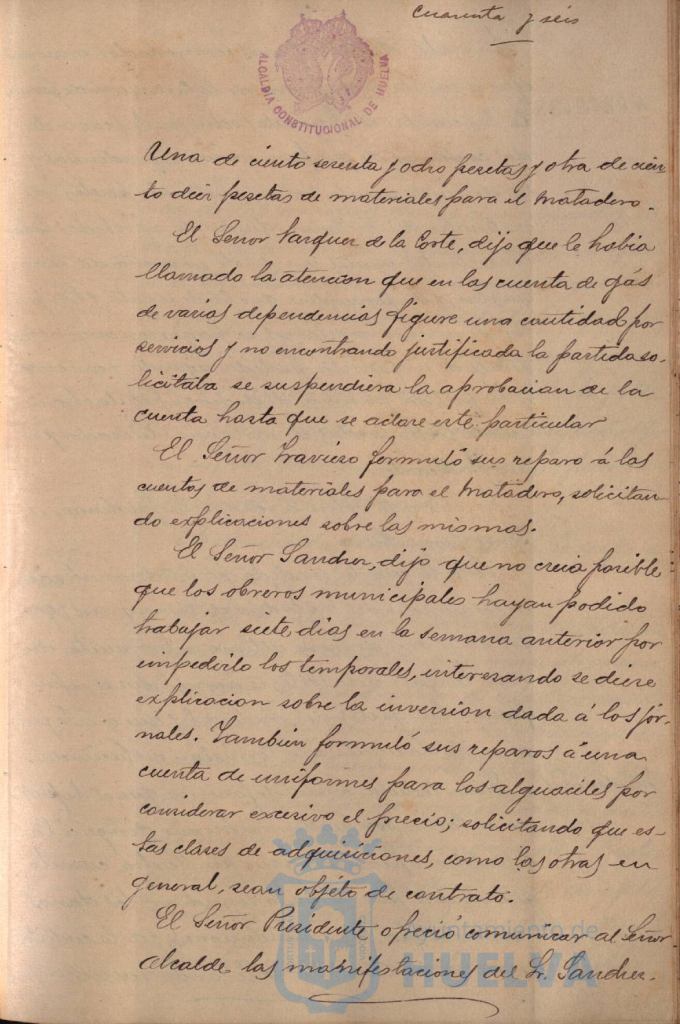 cuarenta y seis
ALCALDÍA CONSTITUCIONAL DE HUELVA
Una de ciento sesenta y ocho pesetas y otra de cien-
to diez pesetas de materiales para el Matadero.
El Señor Vazquez de la Corte, dijo que le habia
llamado la atencion que en las cuenta de gás
de varias dependencias figure una cantidad por
servicios y no encontrando justificada la partida so-
licitaba se suspendiera la aprobacion de la
cuenta hasta que se aclare este particular
El Señor Travieso formuló sus reparo á las
cuentas de materiales para el Matadero, solicitan-
do explicaciones sobre las mismas.
El Señor Sanchez, dijo que no creia posible
que los obreros municipales hayan podido
trabajar siete dias en la semana anterior por
impedirlo los temporales, interesando se diese
explicacion sobre la inversion dada á los jor-
nales. Tambien formuló sus reparos á una
cuenta de uniformes para los alguaciles por
considerar excesivo el precio; solicitando que es-
tas clases de adquisiciones, como las otras en
general, sean objéto de contrato.
El Señor Presidente ofreció comunicar al Señor
Alcalde las manifestaciones del Sr. Sanchez.
Ayuntamiento de
HUELVA